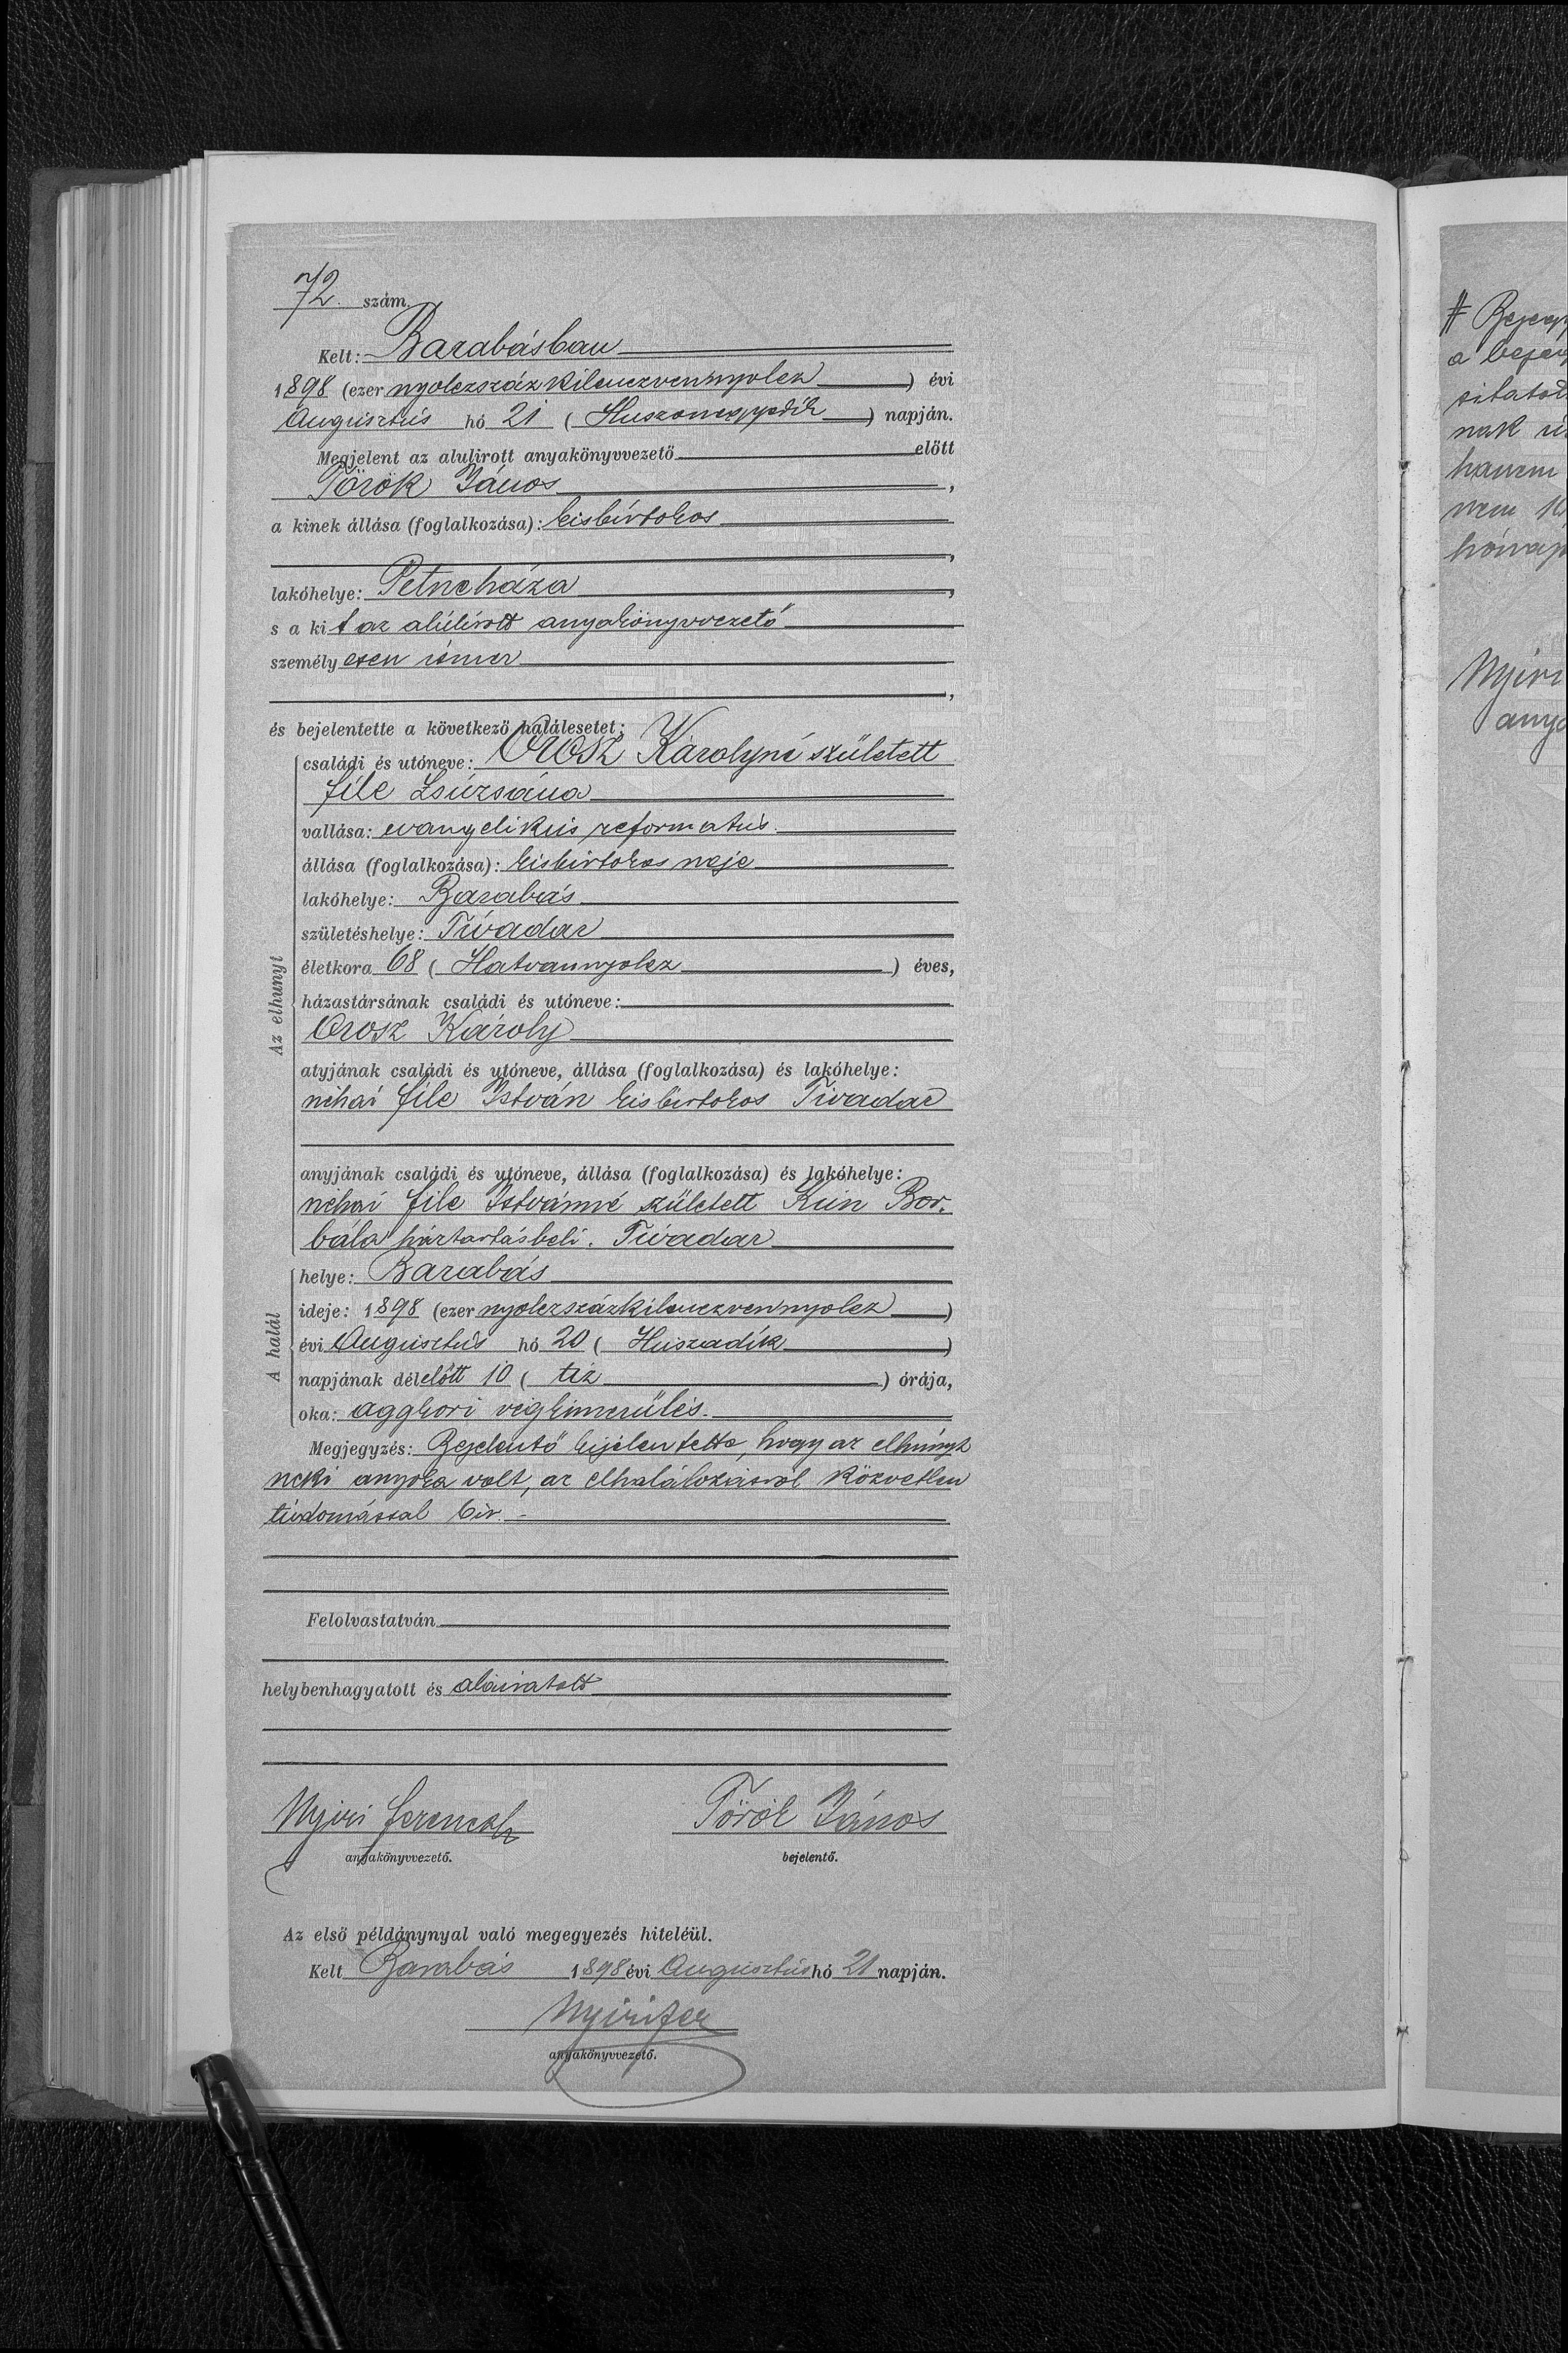 72. szám.
Kelt: Barabásban
1898 (ezer nyolczszáz kilenczvennyolcz) évi
Augusztús hó 21 (Huszonegyedik) napján.
Megjelent az alulirott anyakönyvvezető előtt
Török János,
a kinek állása (foglalkozása): kisbírtokos
,
lakóhelye: Petneháza,
s a kit az alúlírott anyakönyvvezető
személyesen ismer
,
és bejelentette a következő halálesetet:
Az elhunyt
családi és utóneve: Orosz Károlyné született
file Zsúzsána
vallása: evangelikús reformatús.
állása (foglalkozása): kisbirtokos neje
lakóhelye: Barabás
születéshelye: Tivadar
életkora 68 (Hatvannyolcz) éves,
házastársának családi és utóneve:
Orosz Károly
atyjának családi és utóneve, állása (foglalkozása) és lakóhelye:
néhai file István kisbirtokos Tivadar
anyjának családi és utóneve, állása (foglalkozása) és lakóhelye:
néhai file Istvánné született Kún Bor.
bála háztartásbeli. Tivadar
A halál
helye: Barabás
ideje: 1898 (ezer nyolczszázkilenczvennyolcz)
évi Augusztus hó 20 (Húszadik)
napjának délelőtt 10 (tiz) órája,
oka: aggkori végkimerülés.
Megjegyzés: Bejelentő kijelentette, hogy az elhúnyt
neki anyósa volt, az elhalálozásról közvetlen
túdomással bir. -
Felolvastatván
helybenhagyatott és aláiratott
Nyiri Ferencz Török János
anyakönyvvezető. bejelentő.
Az első példánynyal való megegyezés hiteléül.
Kelt Barabás 1898 évi Augusztus hó 21 napján.
Nyiri Fer
anyakönyvvezető.
#
a
nak
hanem
nem
Nyiri